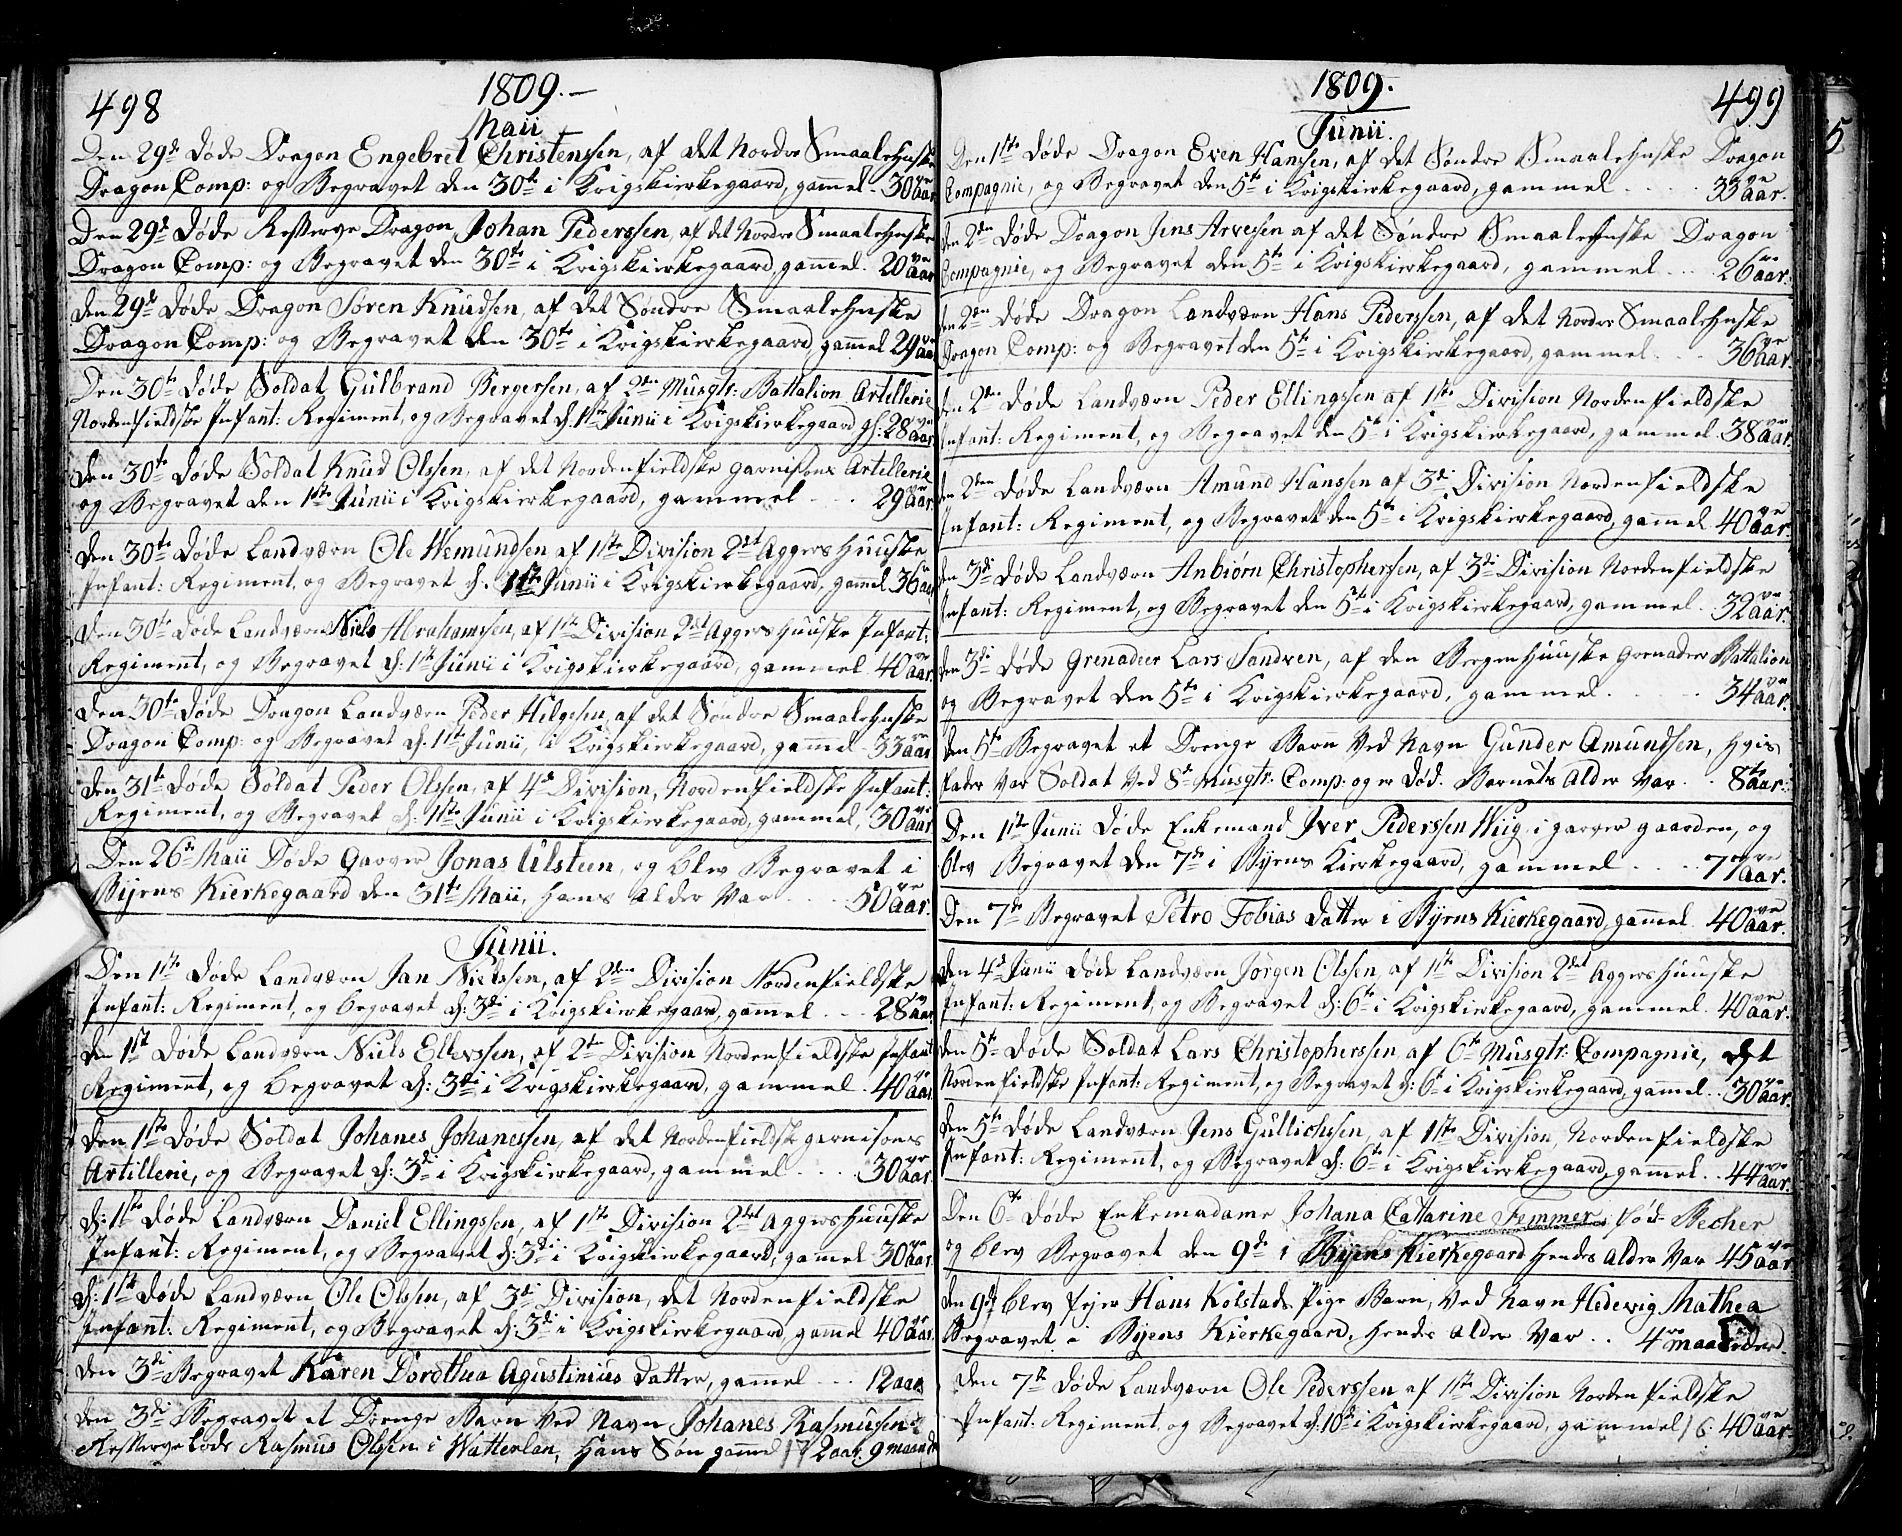 498
1809.
Maii
Den 29de Døde Dragon Engebret Christenssen, af det Nordre Smaalehnske
Dragon Comp: og Begravet den 30te i Krigskierkegaard, gammel 30ve aar
Den 29de Døde Resserve Dragon Johan Pederssen, af det Nordre Smaalehnske
Dragon Comp: og Begravet den 30te i Krigskierkegaard, gammel. 20ve aar
Den 29de Døde Dragon Søren Knudsen, af det Søndre Smaalehnske
Dragon Comp: og Begravet den 30te i Krigskierkegaard, gammel 29ve aar
Den 30te Døde Soldat Gulbrand Bergersen, af 2den Musqtr: Battalion Artellerie
Nordenfieldske Infant: Regiment, og Begravet d. 1ste Junii i Krigskierkegaard gl: 28ve aar
Den 30te Døde Soldat Knud Olssen, af det Nordenfieldske garnisons Artellerie
og Begravet den 1ste Junii i Krigskierkegaard, gammel - - - 29ve aar
Den 30te Døde Landværn Ole Wemundsen af 1ste Division 2det Aggershuuske
Infant: Regiment, og Begravet d. 1ste Junii i Krigskierkegaard, gammel 36ve aar
Den 30te Døde Landværn Niels Abrahamssen, af 1ste Division 2det Aggershuuske Infant:
Regiment, og Begravet d: 1ste Junii i Krigskierkegaard, gammel 40ve aar
Den 30te Døde Dragon Landværn Peder Hilgesen, af det Søndre Smaalehnske
Dragon Comp: og Begravet d. 1ste Junii, i Krigskierkegaard, gammel 33 aar
Den 31te Døde Soldat Peder Olssen, af 4de Division, Nordenfieldske Infant:
Regiment, og Begravet d: 1ste Junii i Krigskierkegaard, gammel, 30ve aar
Den 26de Maii Døde Garver Jonas Ulsteen, og blev Begravet i
Byens Kierkegaard den 31te Maii, hans Alder Var - - - 50ve aar.
Junii.
Den 1ste Døde Landværn Jan Nielssen, af 2den Division Nordenfieldske
Infant: Regiment, og begravet d: 3di i Krigskierkegaard, gammel - - - 28ve aar
Den 1ste Døde Landværn Niels Ellevssen, af 2den Division Nordenfieldske Infant
Regiment, og begravet d: 3di i Krigskierkegaard, gammel. 40ve aar.
Den 1ste Døde Soldat Johanes Johanessen, af det Nordenfieldsk garnisons
Artillerie, og Begravet d: 3di i Krigskierkegaard, gammel - - - - 30ve aar.
d: 1ste Døde Landværn Daniel Ellingssen, af 1ste Division 2det Aggershuuske
Infant: Regiment, og Begravet d: 3di i Krigskierkegaard, gammel 30ve aar.
d: 1ste Døde Landværn Ole Olssen, af 3di Division, det Nordenfieldske
Infant: Regiment, og Begravet d: 3di i Krigskierkegaard, gammel 40ve aar.
Den 3di Begravet Karen Dorothea Agustinius Datter, gammel - - - 12 aar
Den 3di Begravet et Drenge Barn Ved Navn Johanes Rasmusen
Resserve Lods Rasmus Olssen i Watterlan, hans Søn gammel 2 aar. 9 maand
1809.
499
Junii.
Den 1ste Døde Dragon Even Hansen, af det Søndre Smaalehnske Dragon
Compagnie, og Begravet den 5te i Krigskierkegaard, gammel - - - - 33ve aar.
den 2den Døde Dragon Jens Arvesen af det Søndre Smaalehnske Dragon
Compagnie, og Begravet den 5te i Krigskierkegaard, gammel - - - 26ve aar.
den 2den Døde Dragon Landværn Hans Pederssen, af det Nordre Smaalehnske
Dragon Comp: og Begravet den 5te i Krigskierkegaard, gammel - - - 36ve aar.
den 2den Døde Landværn Peder Ellingssen af 1ste Division Nordenfieldske
Infant: Regiment, og Begravet den 5te i Krigskierkegaard, gammel. 38ve aar.
den 2den Døde Landværn Amund Hanssen af 3di Division Nordenfieldske
Infant: Regiment, og Begravet den 5te i Krigskierkegaard, gammel 40ve aar.
den 3di Døde Landværn Anbiørn Christopherssen, af 3di Division Nordenfieldske
Infant: Regiment, og Begravet den 5te i Krigskierkegaard, gammel. 32ve aar.
den 3di Døde Grenadeer Lars Sandven, af den Bergenhuuske Grenadeer Battalion
og Begravet den 5te i Krigskierkegaard, gammel - - - - 34ve aar.
den 5te Begravet et Drenge Barn Ved Navn Gunder Amundsen, hvis
Fader Var Soldat Ved 8de Musqtr: Comp: og er død. Barnets Alder Var - 8te aar.
Den 1ste Junii Døde Enkemand Iver Pederssen Wiig i garver gaarden, og
blev Begravet den 7de i Byens Kierkegaard, gammel - - - 77ve aar.
Den 7de Begravet Petro Tobias Datter i Byens Kierkegaard, gammel 40ve aar.
Den 4de Junii Døde Landværn Jørgen Olssen, af 1ste Division 2det Aggershuuske
Infant: Regiment, og Begravet d: 6te i Krigskierkegaard, gammel. 40ve aar.
Den 5te Døde Soldat Lars Christopherssen af 6te Musqtr: Compagnie, det
Nordenfieldske Infant: Regiment, og Begravet d: 6te i Krigskierkegaard, gammel. 30ve aar.
Den 5te Døde Landværn Jens Gullichsen, af 1ste Division, Nordenfieldske
Infant: Regiment, og Begravet d: 6te i Krigskierkegaard, gammel - - 44ve aar.
Den 6te Døde Enkemadame Johana Catarine Femmer, fød Becher
og blev Begravet den 9de i Byens Kierkegaard hendes Alder Var 45ve aar
den 9de blev Hans Kolstads Pige Barn, Ved Navn Hedevig Mathea
Begravet i Byens Kierkegaard, hendes Alder Var - - 4re maaneder
Den 7de Døde Landværn Ole Pederssen af 1ste Division Norden fieldske
Infant: Regiment, og Begravet d: 10de i Krigskierkegaard, gammel 40ve aar.